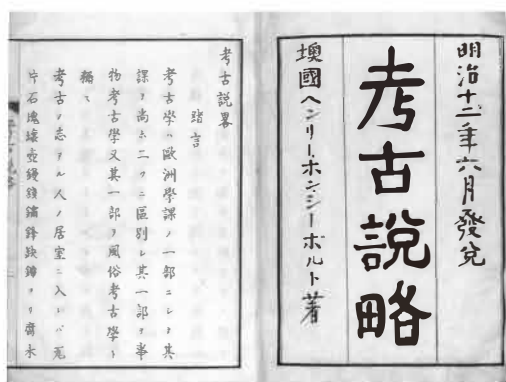 明治十二年六月發兌
考古説略
墺國ヘンリーホンシーボルト著
考古説畧
緒言
考古學ハ歐洲學課ノ一部ニシテ其
課ヲ尚ホ二ツニ區別シ其一部ヲ事
物考古學又其一部ヲ風俗考古學ト
稱ス
考古ノ志アル人ノ居室ニ入レバ瓦
片石塊壊壺